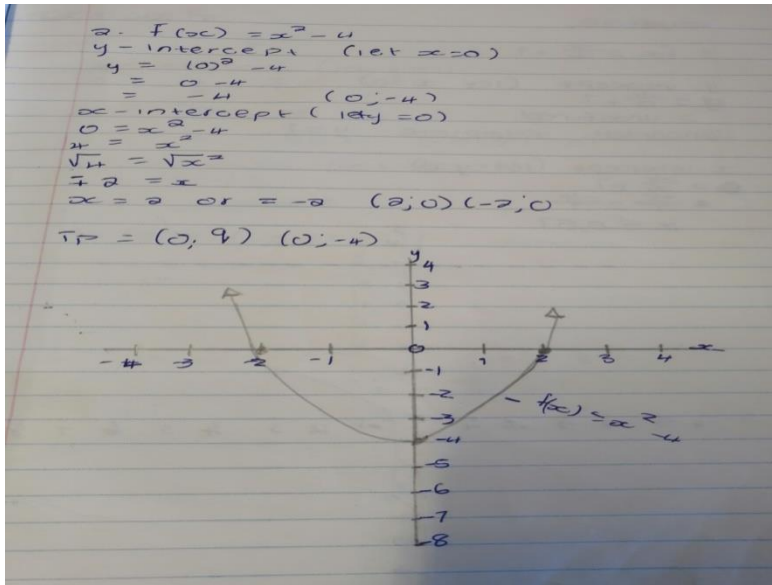 2. f(x) = x² - 4
y-intercept (let x=0)
y = (0)² - 4
= 0 - 4
= -4 (0;-4)
x-intercept (let y=0)
0 = x² - 4
4 = x²
√4 = √x²
∓ 2 = x
x = 2 or = -2 (2;0)(-2;0
TP = (0; q) (0;-4)
y
4
3
2
1
-4 -3 -2 -1 0 1 2 3 4 x
-1
-2
-3
-4
- f(x) = x² - 4
-5
-6
-7
-8